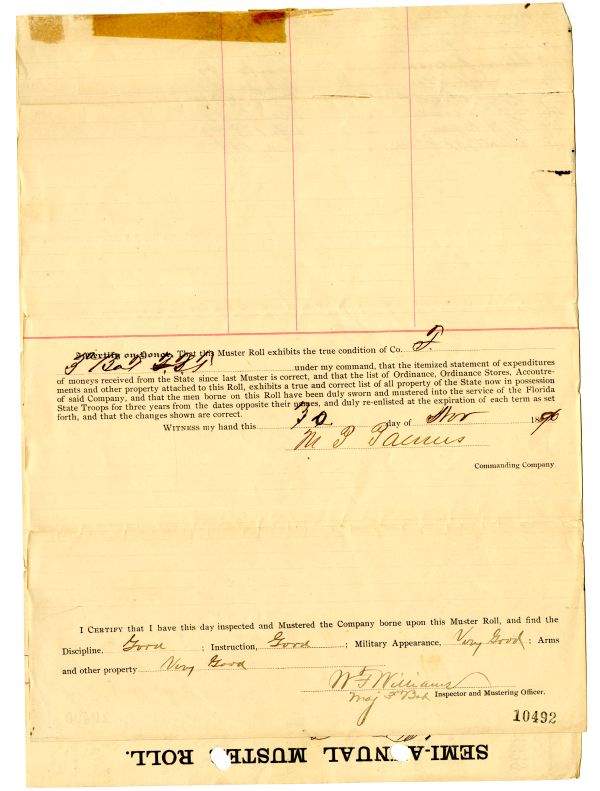 I Certify on Honor, That this Muster Roll exhibits the true condition of Co. F.
Bat F.S.T. under my command, that the itemized statement of expenditures
of moneys received from the State since last Muster is correct, and that the list of Ordinance, Ordinance Stores, Accoutre-
ments and other property attached to this Roll, exhibits a true and correct list of all property of the State now in possession
of said Company, and that the men borne on this Roll have been duly sworn and mustered into the service of the Florida
State Troops for three years from the dates opposite their names, and duly re-enlisted at the expiration of each term as set
forth, and that the changes shown are correct.
WITNESS my hand this 30 day of Nov 1890
M P
Commanding Company
I CERTIFY that I have this day inspected and Mustered the Company borne upon this Muster Roll, and find the
Discipline, Good ; Instruction, Good ; Military Appearance, Very Good ; Arms
and other property Very Good
W F Williams
Maj Bat Inspector and Mustering Officer.
10492
SEMI-ANNUAL MUSTER ROLL.